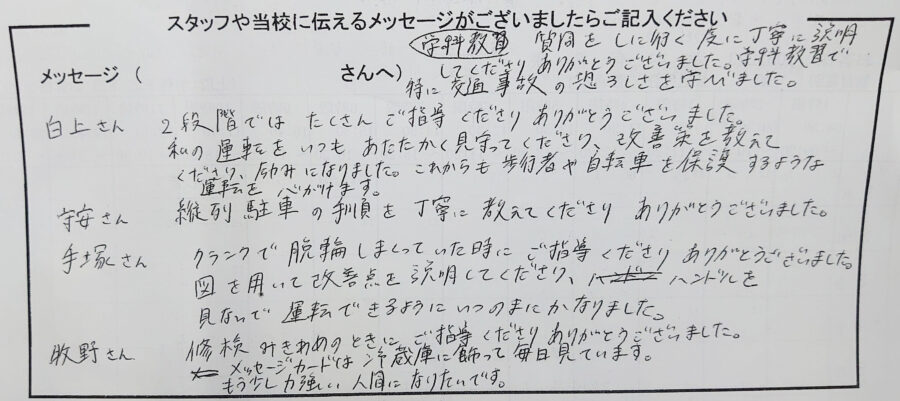 スタッフや当校に伝えるメッセージがございましたらご記入ください
学科教習 質問をしに行く度に丁寧に説明
メッセージ( さんへ) してくださりありがとうございました。学科教習で
特に交通事故の恐ろしさを学びました。
白上さん 2段階ではたくさんご指導くださりありがとうございました。
私の運転をいつもあたたかく見守ってくださり、改善策を教えて
くださり、励みになりました。これからも歩行者や自転車を保護するような
運転を心がけます。
守安さん 縦列駐車の手順を丁寧に教えてくださりありがとうございました。
手塚さん クランクで脱輪しまくっていた時にご指導くださりありがとうございました。
図を用いて改善点を説明してくださり、ハンドルを
見ないで運転できるようにいつのまにかなりました。
牧野さん 修検みきわめのときにご指導くださりありがとうございました。
メッセージカードは冷蔵庫に飾って毎日見ています。
もう少し力強い人間になりたいです。